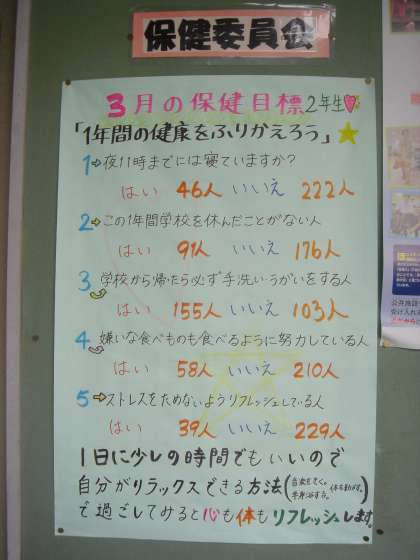 保健委員会
3月の保健目標 2年生
「1年間の健康をふりかえろう」
1 夜11時までには寝ていますか?
はい 46人 いいえ 222人
2 この1年間学校を休んだことがない人
はい 91人 いいえ 176人
3 学校から帰ったら必ず手洗いうがいをする人
はい 155人 いいえ 103人
4 嫌いな食べものも食べるように努力している人
はい 58人 いいえ 210人
5 ストレスをためないようリフレッシュしている人
はい 39人 いいえ 229人
1日に少しの時間でもいいので
自分がリラックスできる方法(音楽をきく。体を動かす。
半身浴する。)
で過ごしてみると心も体もリフレッシュします。
公共施設
受け入れ